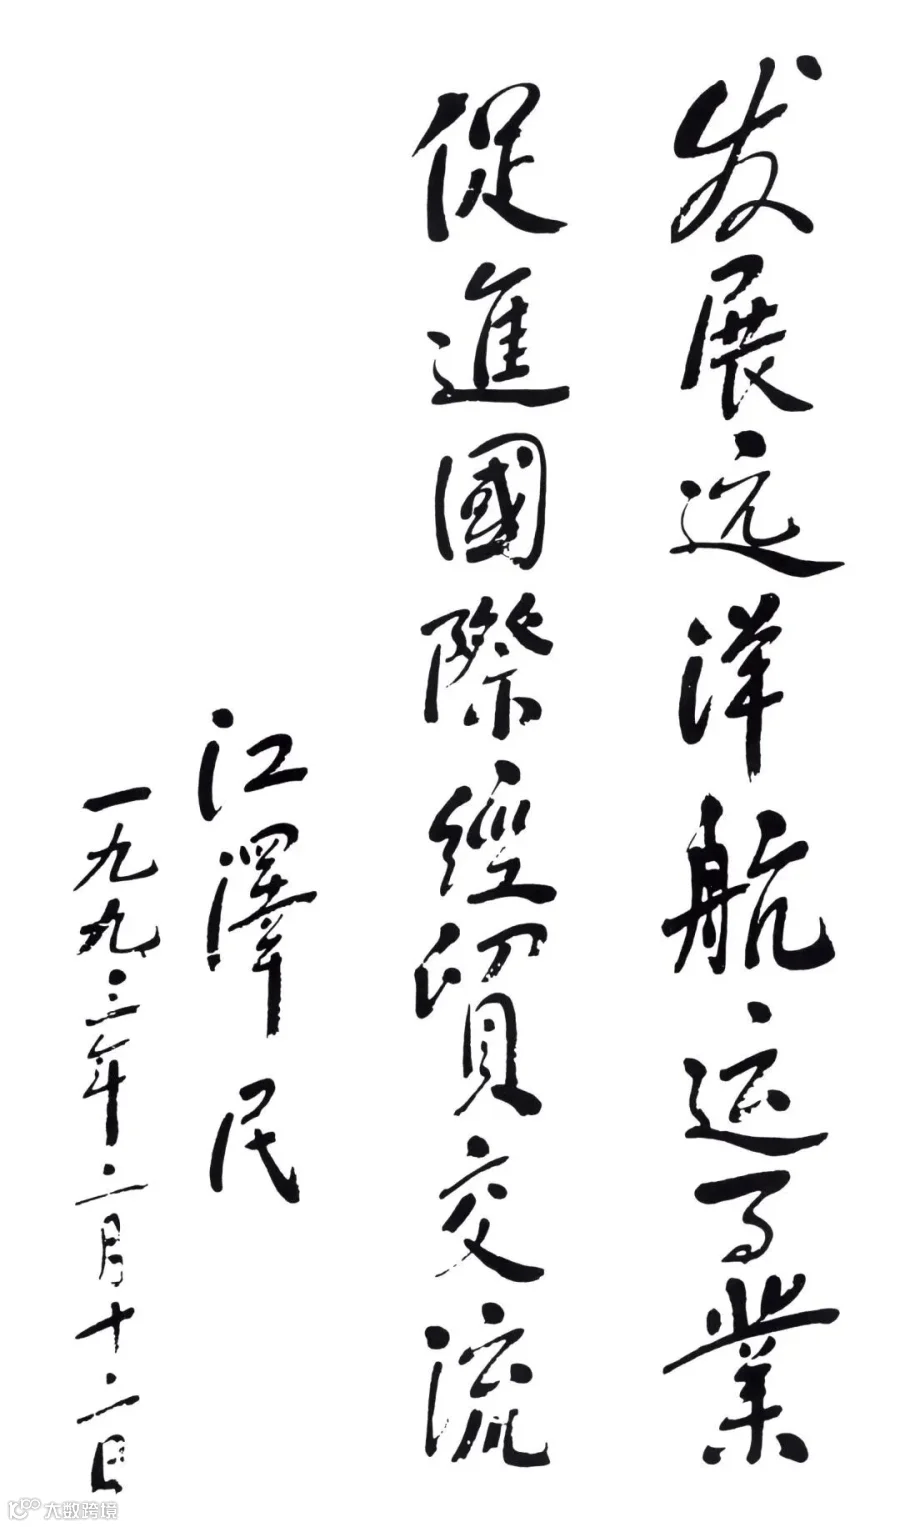 发展远洋航运事业
促進國際經貿交流
江澤民
一九九三年二月十二日
大数跨境